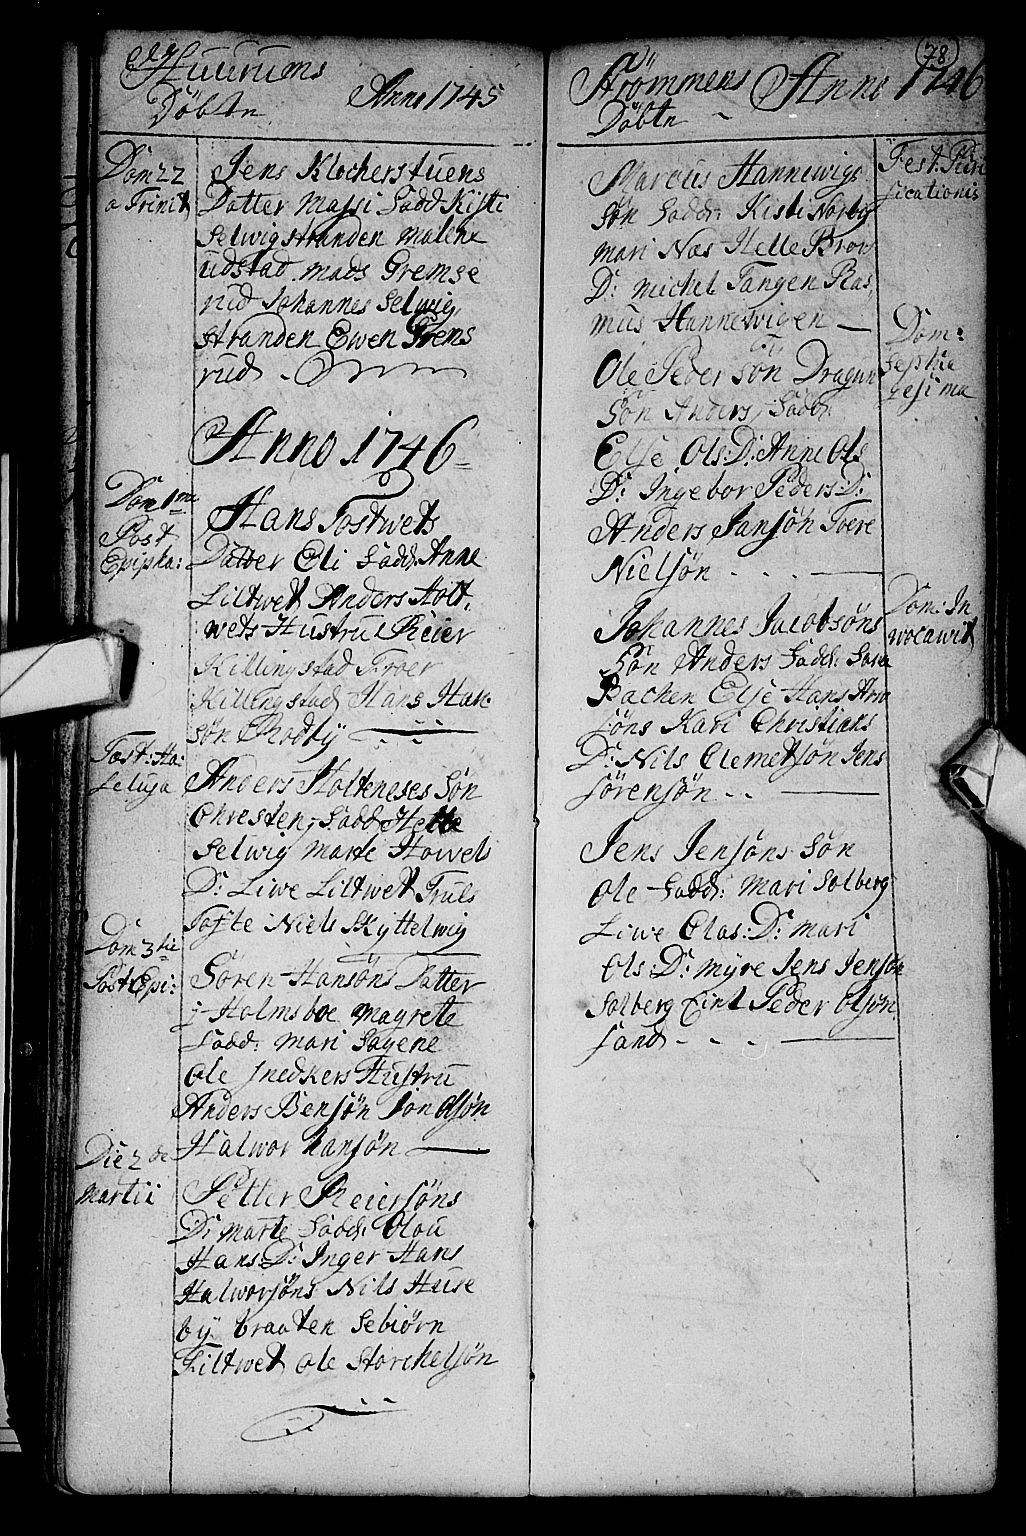 Huurums
Döbte Anno 1745
Dom 22
a Trinit
Jens Klocherstuens
Datter Massi Fadd Kisti
Selwigstranden Malene
udstad mads Gremse
rud Johannes Selwig
stranden Ewen Grems
rud
Anno 1746
Dom 1me
Post
Epipha:
Hans Tostwets
Datter Eli Fadd: Anne
Liltwet Anders Holt,
wets Hustru Reier
Killingstad Froer
Killingstad Hans Han
søn Rodby
Fest: Ha:
leluja
Anders Holteneses Søn
Christen, Fadd Helle
Selwig Marte Howels
D: Liwe Liltwet Truls
Tofte Niels Skyttelwig
Dom 3tie
Post Epi:
Søren Hansøns Datter
j Holmsboe Magrete
Fadd: Mari Sagene
Ole Snedkers Hustru
Anders Bensøn Jon Olsøn
Halwor hansøn
Die 2de
Martii
Petter Reiersøns
D: Marte Fadd: Olou
Hans: D: Inger Hans
Halworsøns Nils Huse
by braaten Sebiørn
Liltwet Ole Storchelsøn
78
Strömmens Anno 1746
Döbte
Fest: Puri
ficationis
Marcus Hannewigs
Søn Fadd: Kisti Norby
mari Næs Helle Broch
D: michel Tangen Ras,
mus Hannewigen
Dom:
Septua
gesima
Ole Peder Søn Dragun
Søn Anders, Fadd:
Else Ols: D: Anne Ols
D: Ingebor Peders: D:
Anders Jansøn Tore
Nielsøn
Dom: In
vocawit
Johannes Jacobsøns
Søn Anders Fadd: Sara
Bachen Else Hans Arn
søns Kari Christians
D: Nils Clemetsøn Jens
Sørensøn
Jens Jensøns Søn
Ole Fadd: Mari Solberg
Liwe Olas: D: Mari
Ols: D: Myre Jens Jensøn
Solberg Eint Peder Olsøn
Sand